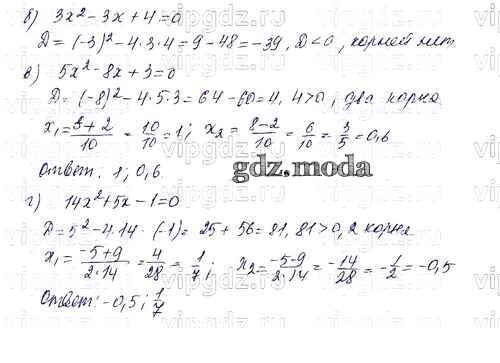 б) 3x² - 3x + 4 = 0
D = (-3)² - 4·3·4 = 9 - 48 = -39, D < 0, корней нет
в) 5x² - 8x + 3 = 0
D = (-8)² - 4·5·3 = 64 - 60 = 4, 4 > 0, два корня.
x₁ = 8+2/10 = 10/10 = 1; x₂ = 8-2/10 = 6/10 = 3/5 = 0,6
Ответ: 1; 0,6.
gdz.moda
г) 14x² + 5x - 1 = 0
D = 5² - 4·14·(-1) = 25 + 56 = 81, 81 > 0, 2 корня
x₁ = -5+9/2·14 = 4/28 = 1/7; x₂ = -5-9/2·14 = -14/28 = -1/2 = -0,5
Ответ: -0,5; 1/7
vipgdz.com